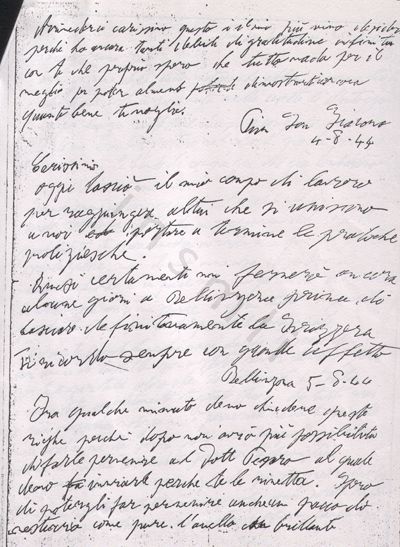 carissimo questo è il mio più vivo
perchè ho ancora tanti debiti di gratitudine
con te che proprio spero che tutto vada per il
meglio per poter almeno dimostrarti ancora
quanto bene ti voglio.
Tuo Giacomo
4-8-44
Carissimo
oggi lascio il mio campo di lavoro
per raggiungere altri che si uniscono
a noi portare a termine le pratiche
poliziesche.
Quasi certamente mi fermerò ancora
alcune giorni a Bellinzona prima di
lasciare definitivamente la Svizzera
Ti ricordo sempre con grande affetto
Bellinzona 5-8-44
Fra qualche minuto devo chiudere queste
righe perchè dopo non avrò più possibilità
di farle pervenire al Dott. al quale
devo inviarle perchè te le rimetta. Spero
di potergli far pervenire anche un pacco di
vestiario come pure l'anello brillante